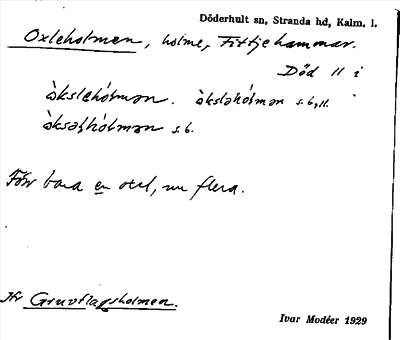 Döderhult sn, Stranda hd, Kalm. l.
Oxleholmen, holme, Fittjehammar.
Död 11 i
àksləhólmən. àksləhólmən s. 6, 11.
àksəhólmən s. 6.
Förr bara en , nu flera.
Jfr Gruvflagsholmen.
Ivar Modéer 1929